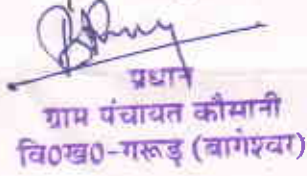 प्रधान
ग्राम पंचायत कौसानी
वि०ख०-गरूड़ (बागेश्वर)